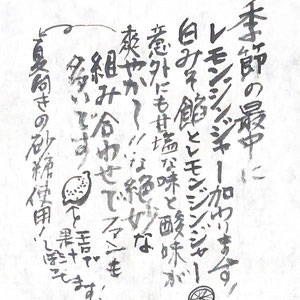 季節の最中に
レモンジンジャー加わります!
白みそ餡とレモンジンジャー
意外にも甘塩な味と酸味が
爽やか〜!!な絶妙な
組み合わせでファンも
多いです
真向きの砂糖使用!